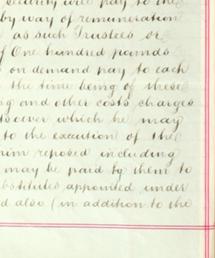 security will pay to the
by way of remuneration
as such Trustees or
of One hundred pounds
on demand pay to each
the time being of these
and other costs charges
which he may
to the execution of the
reposed including
may be paid by them to
substitutes appointed under
also (in addition to the